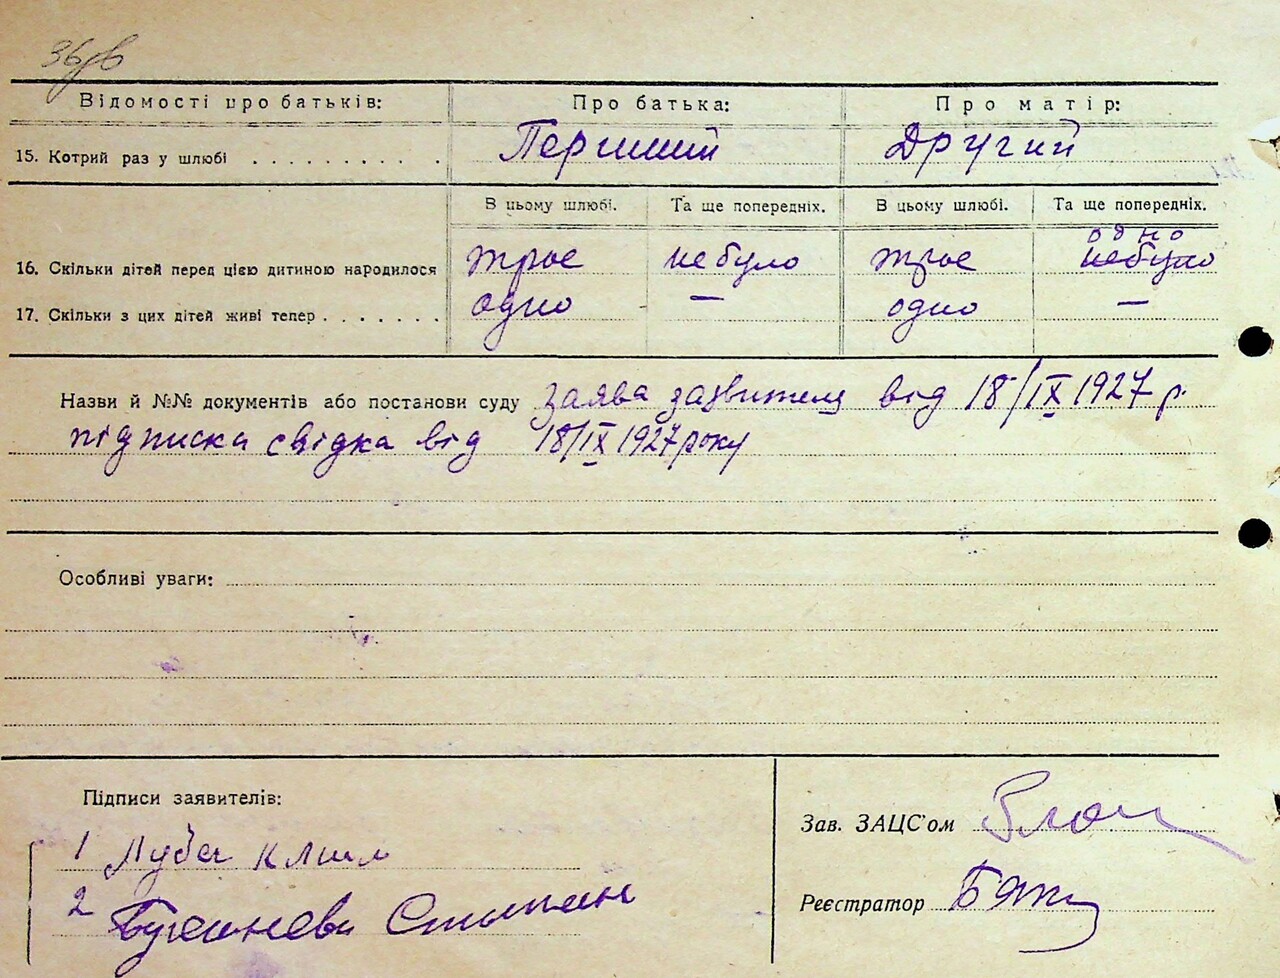 36/в
Відомості про батьків: Про батька: Про матір:
15. Котрий раз у шлюбі . . . . . . . . . . Перший Другий
В цьому шлюбі. Та ще попередніх. В цьому шлюбі. Та ще попередніх.
одно
16. Скільки дітей перед цією дитиною народилося троє небуло троє небуло
17. Скільки з цих дітей живі тепер . . . . . . . одно — одно —
Назви й №№ документів або постанови суду заява заявителя від 18/IX 1927 р.
підписка свідка від 18/IX 1927 року
Особливі уваги:
Підписи заявителів:
Зав. ЗАЦС'ом
1 Клим
Реєстратор
2 Степан